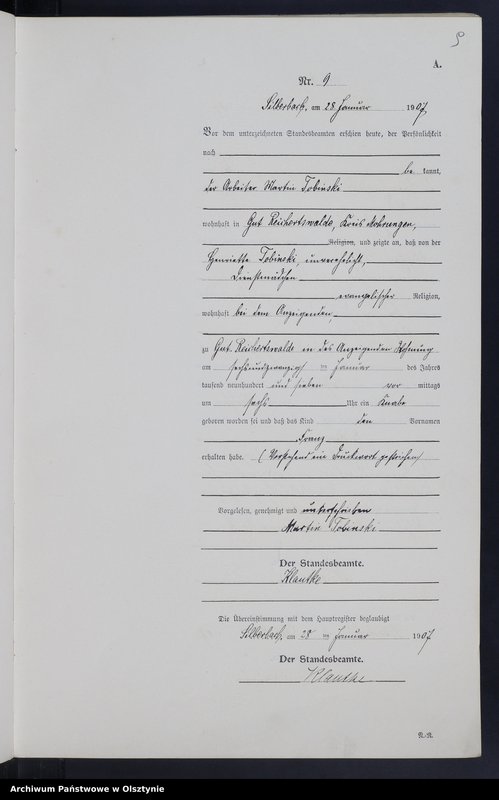 9
A.
Nr. 9
Silberbach, am 28. Januar 1907
Vor dem unterzeichneten Standesbeamten erschien heute, der Persönlichkeit
nach
be kannt,
der Arbeiter Martin Tobinski
wohnhaft in Gut Reichertswalde, Kreis Mohrungen,
Religion, und zeigte an, daß von der
Henriette Tobinski, unverehelicht,
Dienstmädchen
evangelischer Religion,
wohnhaft bei dem Anzeigenden,
zu Gut Reichertswalde in des Anzeigenden Wohnung
am sechsundzwanzigsten Januar des Jahres
tausend neunhundert und sieben vor mittags
um sechs Uhr ein Knabe
geboren worden sei und daß das Kind den Vornamen
Franz
erhalten habe. (Vorstehend ein Druckwort gestrichen)
Vorgelesen, genehmigt und unterschrieben
Martin Tobinski
Der Standesbeamte.
Klautke
Die Übereinstimmung mit dem Hauptregister beglaubigt
Silberbach, am 28 ten Januar 1907
Der Standesbeamte.
Klautke
R.-R.
Archiwum Państwowe w Olsztynie